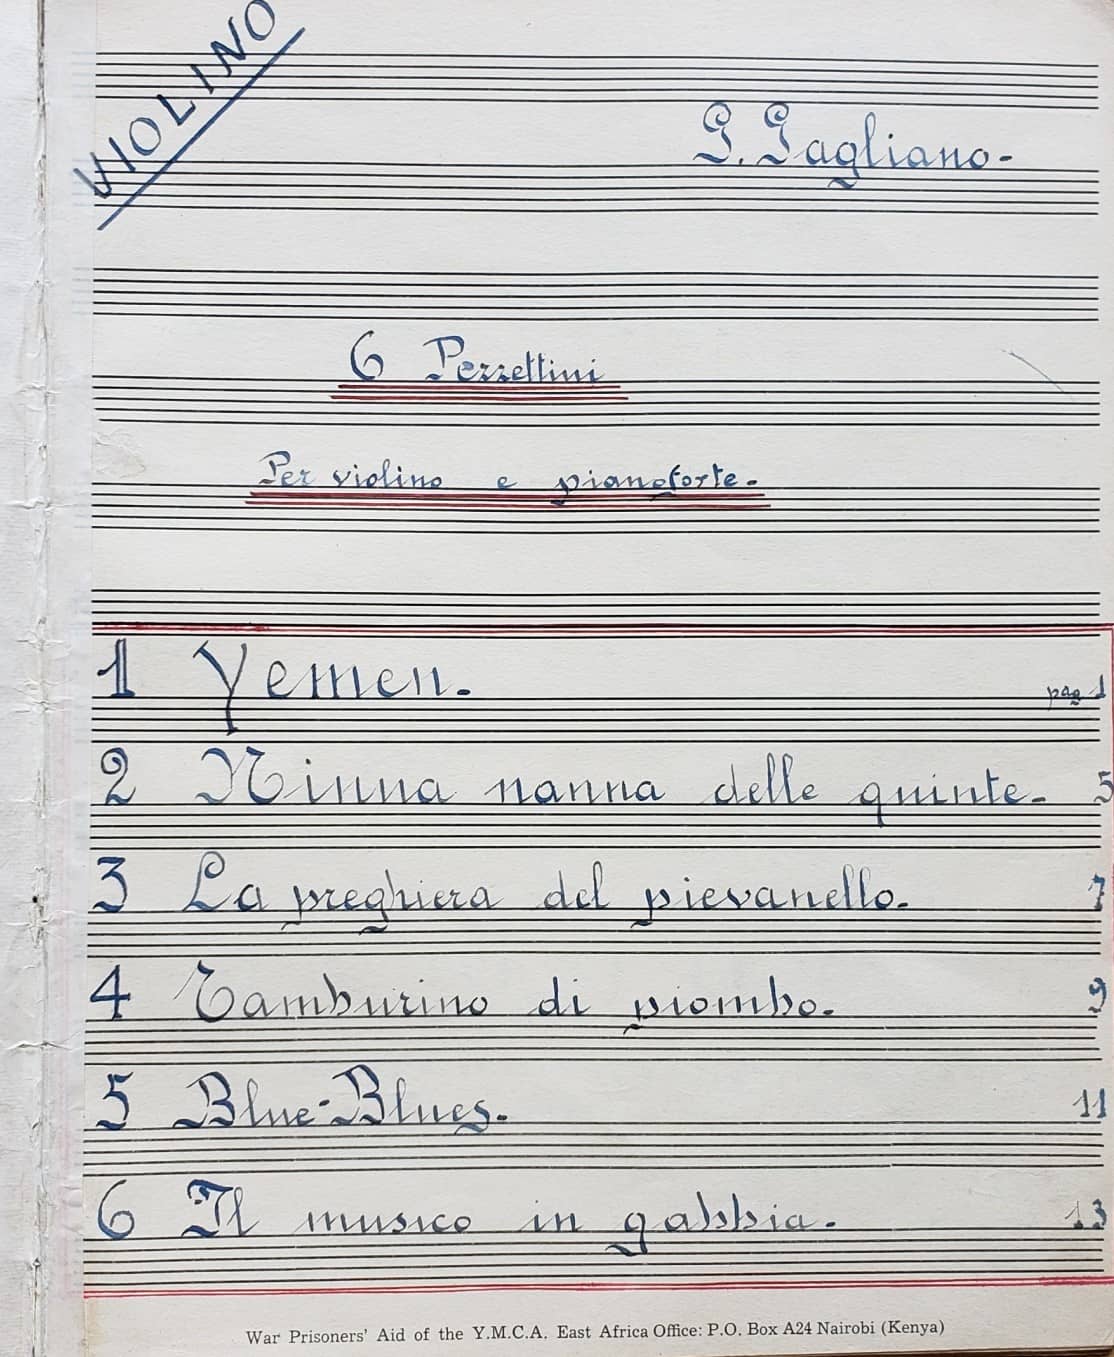 VIOLINO
G. Gagliano-
6 Pezzettini
Per violino e pianoforte.
1 Yemen. pag 1
2 Ninna nanna delle quinte. 5
3 La preghiera del pievanello. 7
4 Tamburino di piombo. 9
5 Blue-Blues. 11
6 Il musico in gabbia. 13
War Prisoners' Aid of the Y.M.C.A. East Africa Office: P.O. Box A24 Nairobi (Kenya)